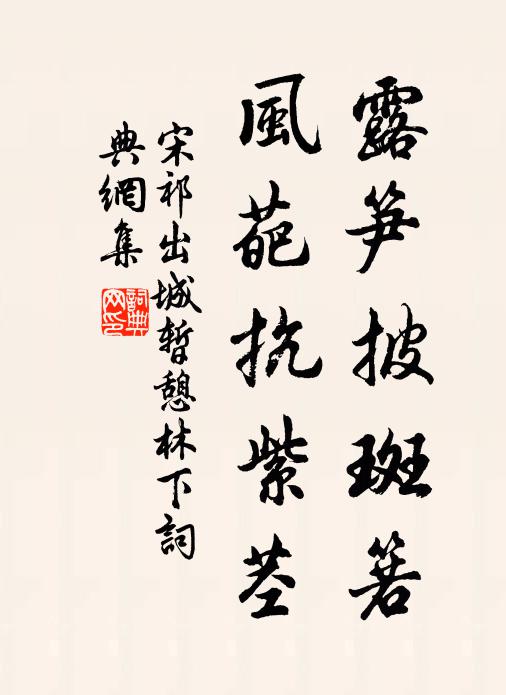 露笋披斑箬
風葩抗紫茎
宋祁出城暫憩林下詞
典網集
詞典網印